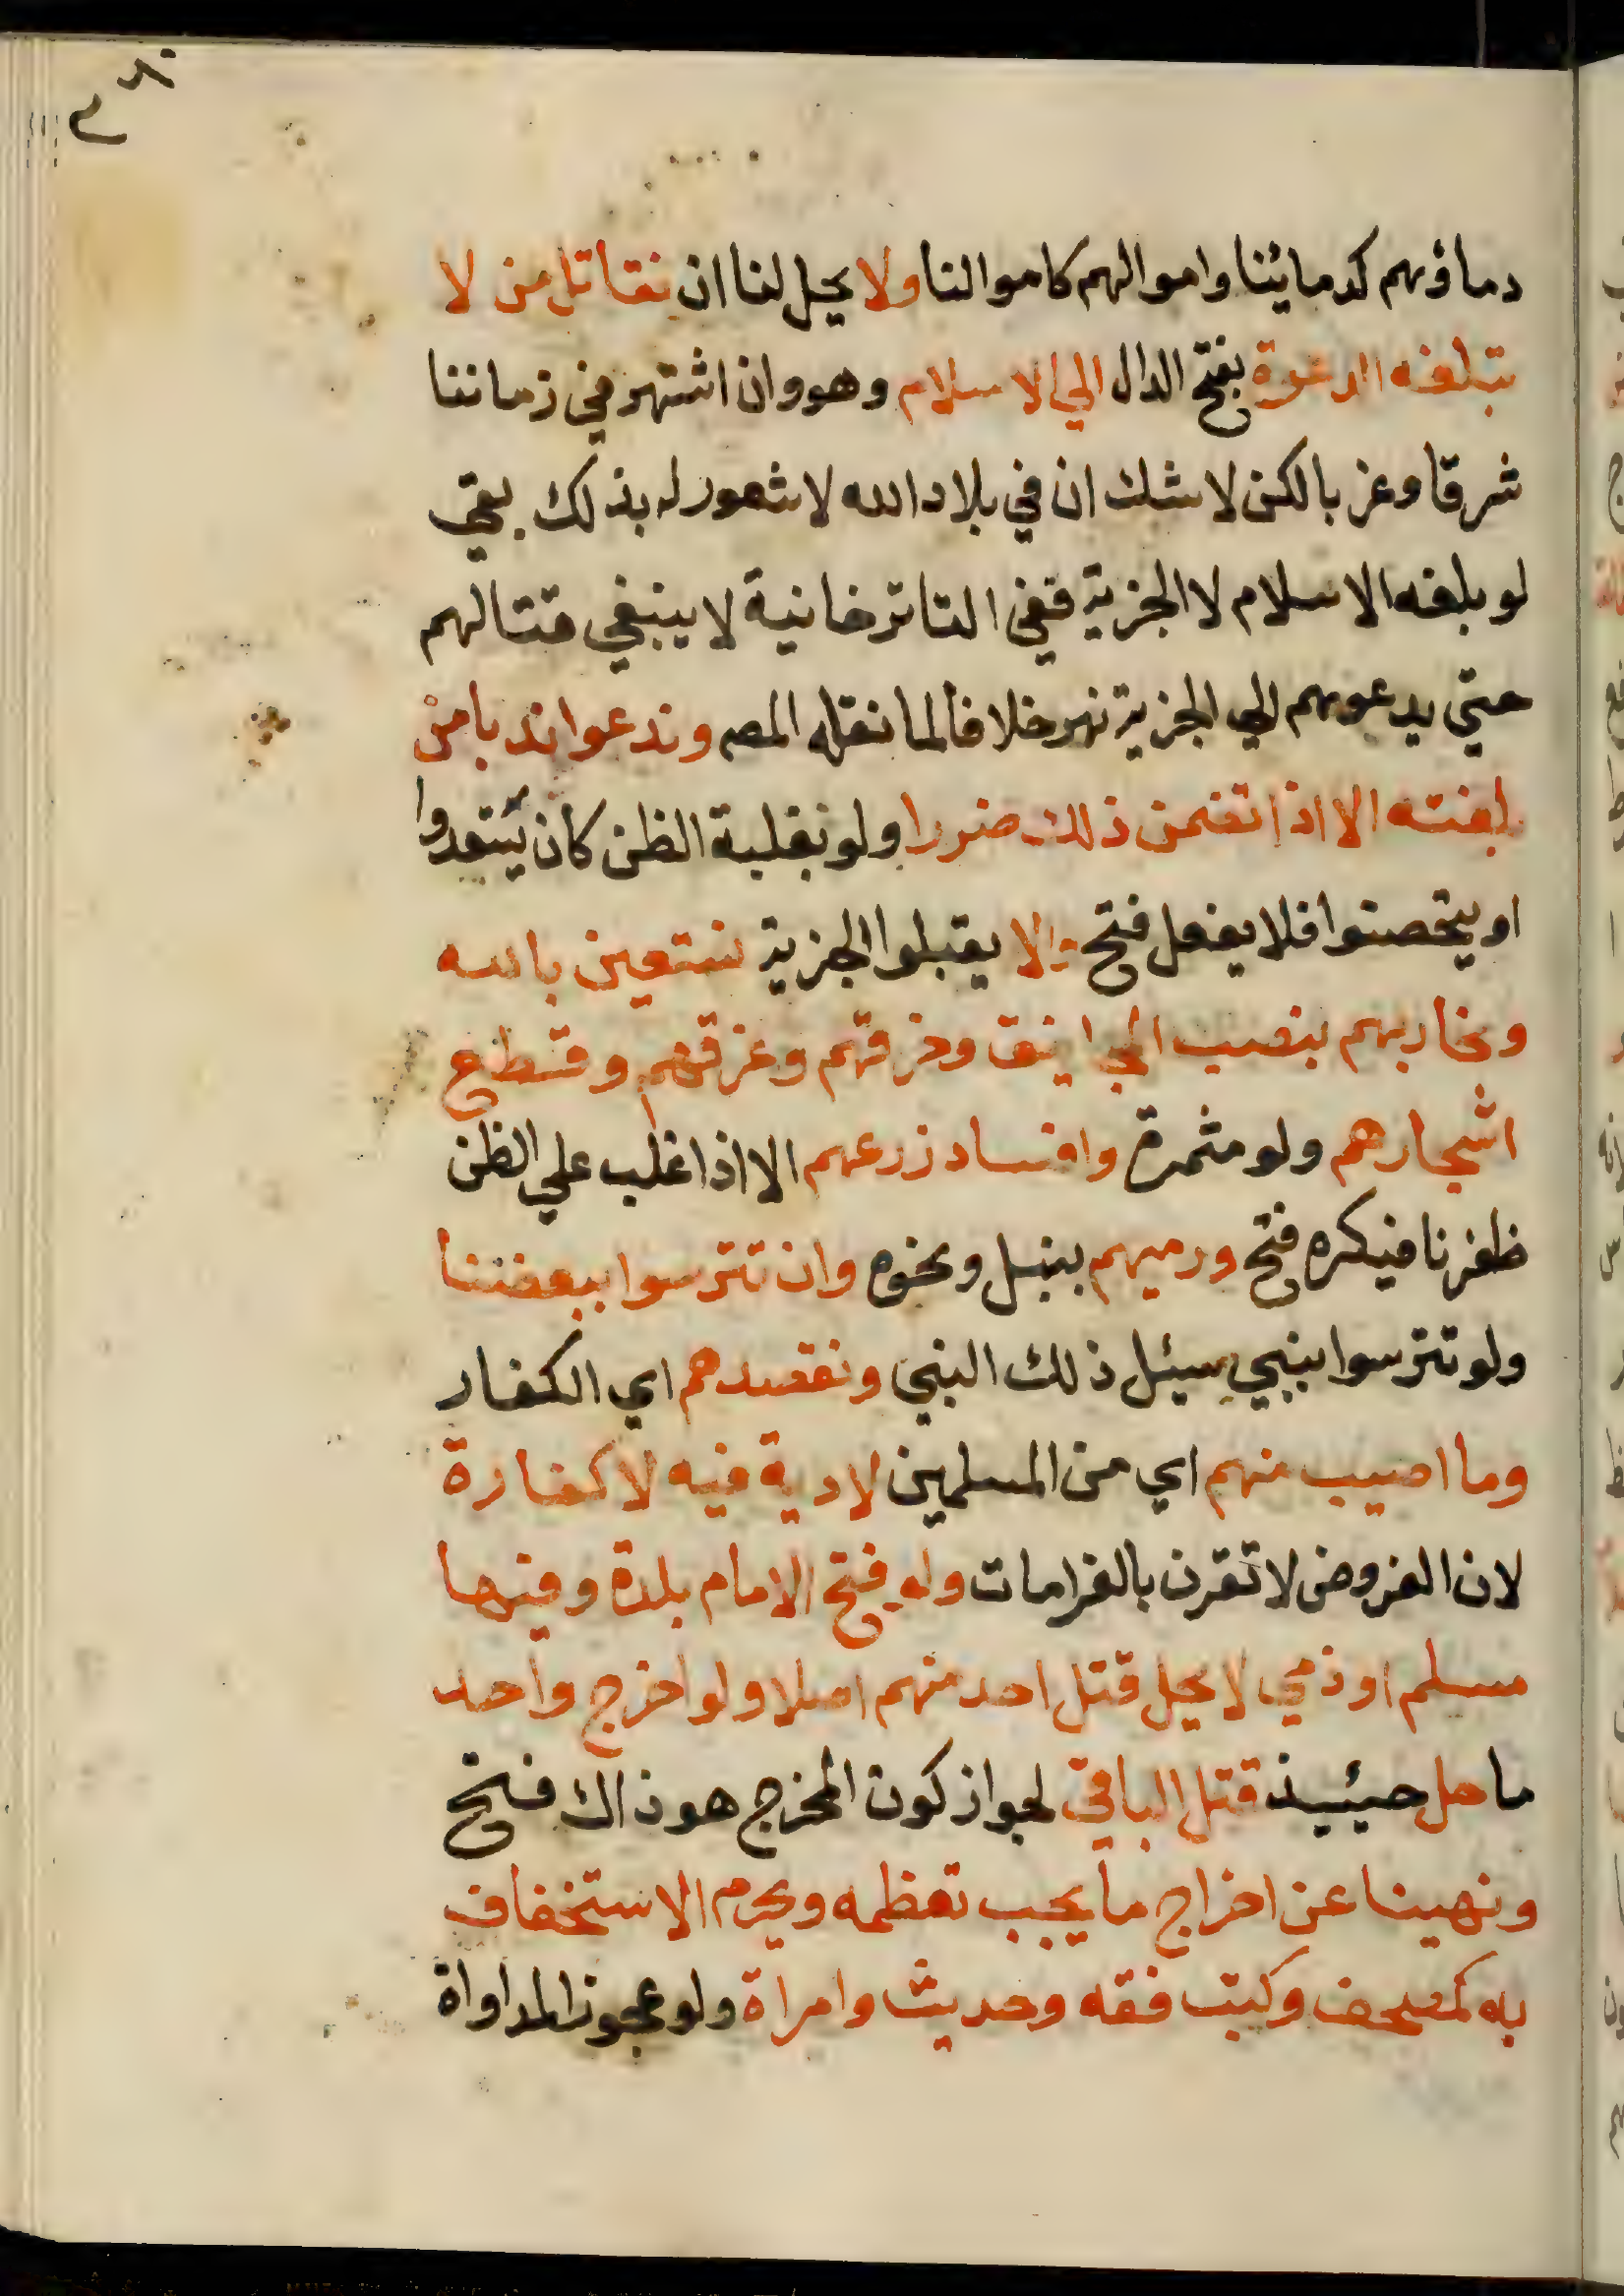 دماؤهم كدمائنا واموالهم كاموالنا ولا يحل لنا ان نقاتل من لا
تبلغه الدعوة بفتح الدال الي الاسلام وهو وان اشتهر في زماننا
شرقا وغربا لكن لا شك ان في بلاد الله لا شعور له بذلك بقي
لو بلغه الاسلام لا الجزية ففي التاترخانية لا ينبغي قتالهم
حتي يدعوهم الي الجزية نهر خلافا لما نقله المصـ وندعو اندبا من
بلغته الا اذا تضمن ذلك ضررا ولو بغلبة الظن كان يستعدوا
او يتحصنوا فلا يفعل فتح والا يقبلوا الجزية نستعين بالله
ونحاربهم بنصب المجانيق وحرقهم وغرقهم وقطع
اشجارهم ولو مثمرة وافساد زرعهم الا اذا غلب علي الظن
ظفرنا فيكره فتح ورميهم بنبل ونحوه وان تترسوا ببعضنا
ولو تترسوا بنبي سيئل ذلك النبي ونقصدهم اي الكفار
وما اصيب منهم اي من المسلمين لا دية فيه لا كفارة
لان الفروض لا تقرن بالغرامات ولو فتح الامام بلدة وفيها
مسلم او ذمي لا يحل قتل احد منهم اصلا ولو اخرج واحد
ما حل حيئيذ قتل الباقي لجواز كون المخرج هو ذاك فتح
ونهينا عن اخراج ما يجب تعظمه ويحرم الاستخفاف
به كمصحف وكتب فقه وحديث وامراة ولو عجوز المداواة